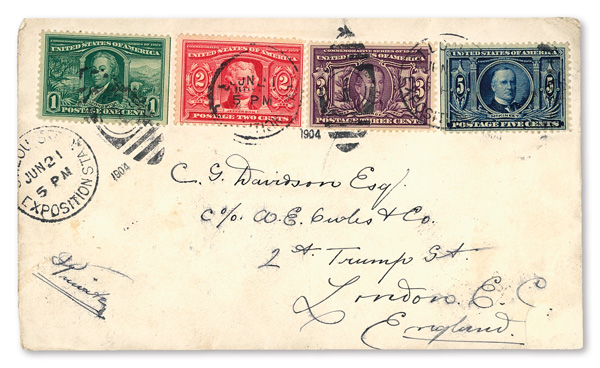 COMMEMORATIVE SERIES OF 1904
UNITED STATES OF AMERICA
1 1
POSTAGE ONE CENT
UNITED STATES OF AMERICA
2 2
POSTAGE TWO CENTS
COMMEMORATIVE SERIES OF 1904
UNITED STATES OF AMERICA
3 3
POSTAGE THREE CENTS
UNITED STATES OF AMERICA
5 5
POSTAGE FIVE CENTS
JUN 21
5 PM
1904
JUN 21
5 PM
EXPOSITION STA.
1904
C. G. Davidson Esq
c/o W. E. & Co.
2 Trump St.
London E. C
England.
Private